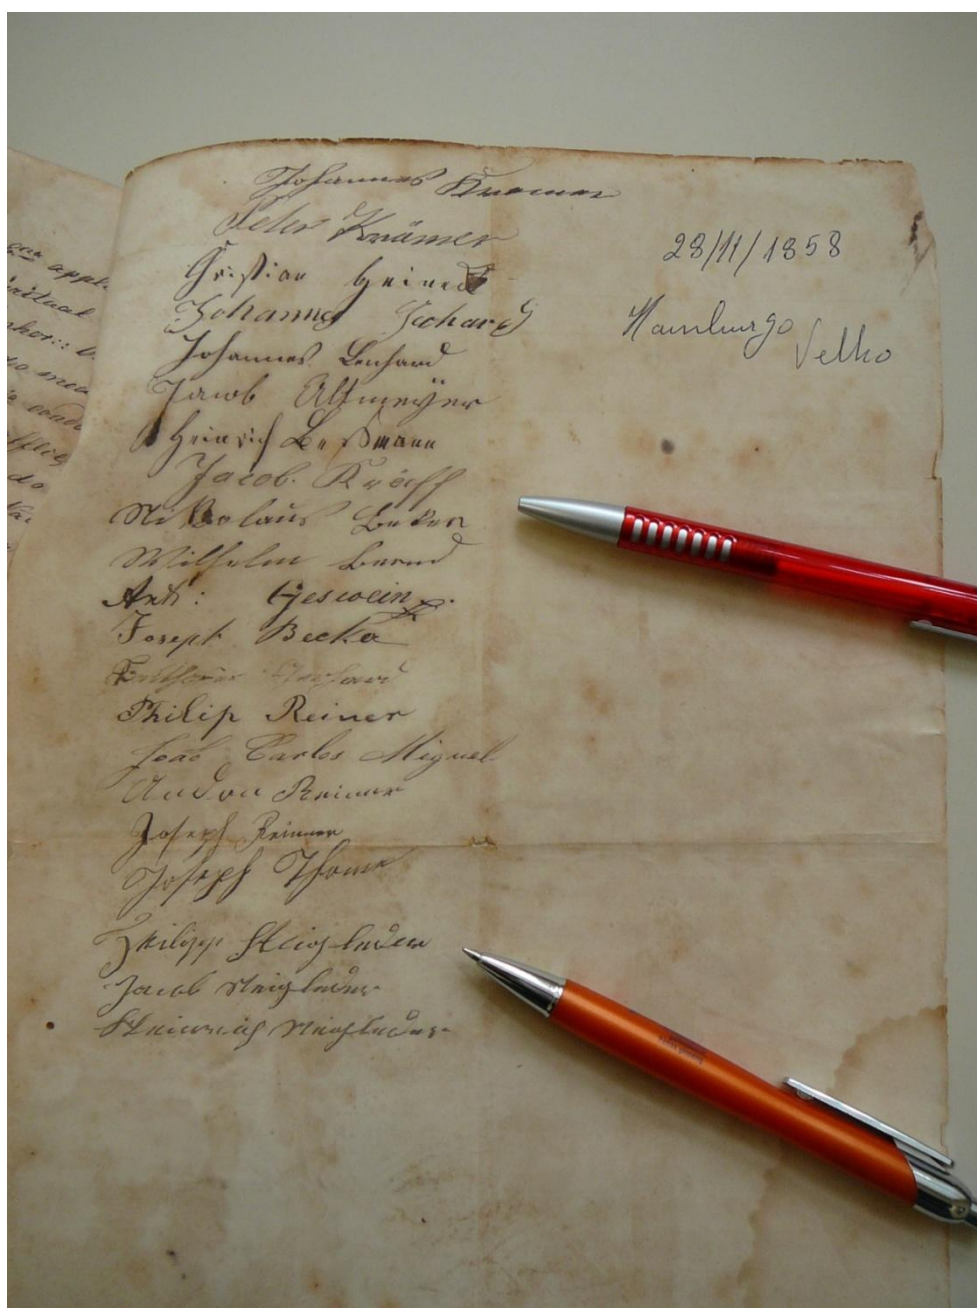 Johannes Kremer
Peter Krämer
Christian Heined
Johannes
Johannes Lenhard
Jacob Altmeyer
Heinrich Beßmann
Jacob. Kröff
Nikolaus Beker
Wilhelm Bernd
Ant: Geswein
Joseph Becker
Philip Reiner
João Carlos Miguel
Andon Reiner
Joseph Reinner
Joseph Thome
Philipp Steigleder
Jacob Steigleder
Heinrich Steigleder
28/11/1858
Hamburgo
Velho